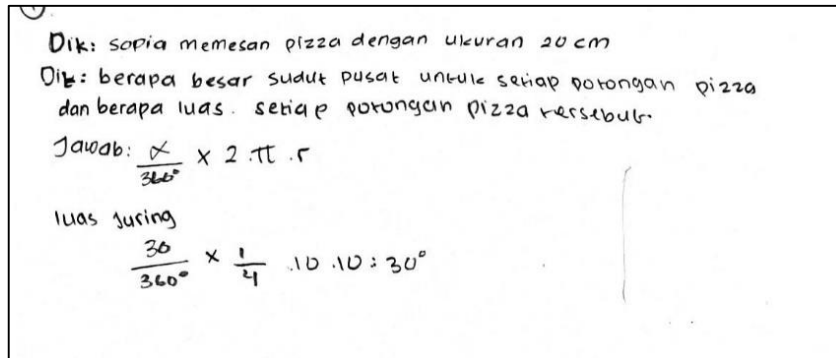 Dik: sopia memesan pizza dengan ukuran 20 cm
Dit: berapa besar sudut pusat untuk setiap potongan pizza
dan berapa luas. setiap potongan pizza tersebut.
Jawab: α/360° × 2.π.r
luas juring
30/360° × 1/4 .10.10 = 30°